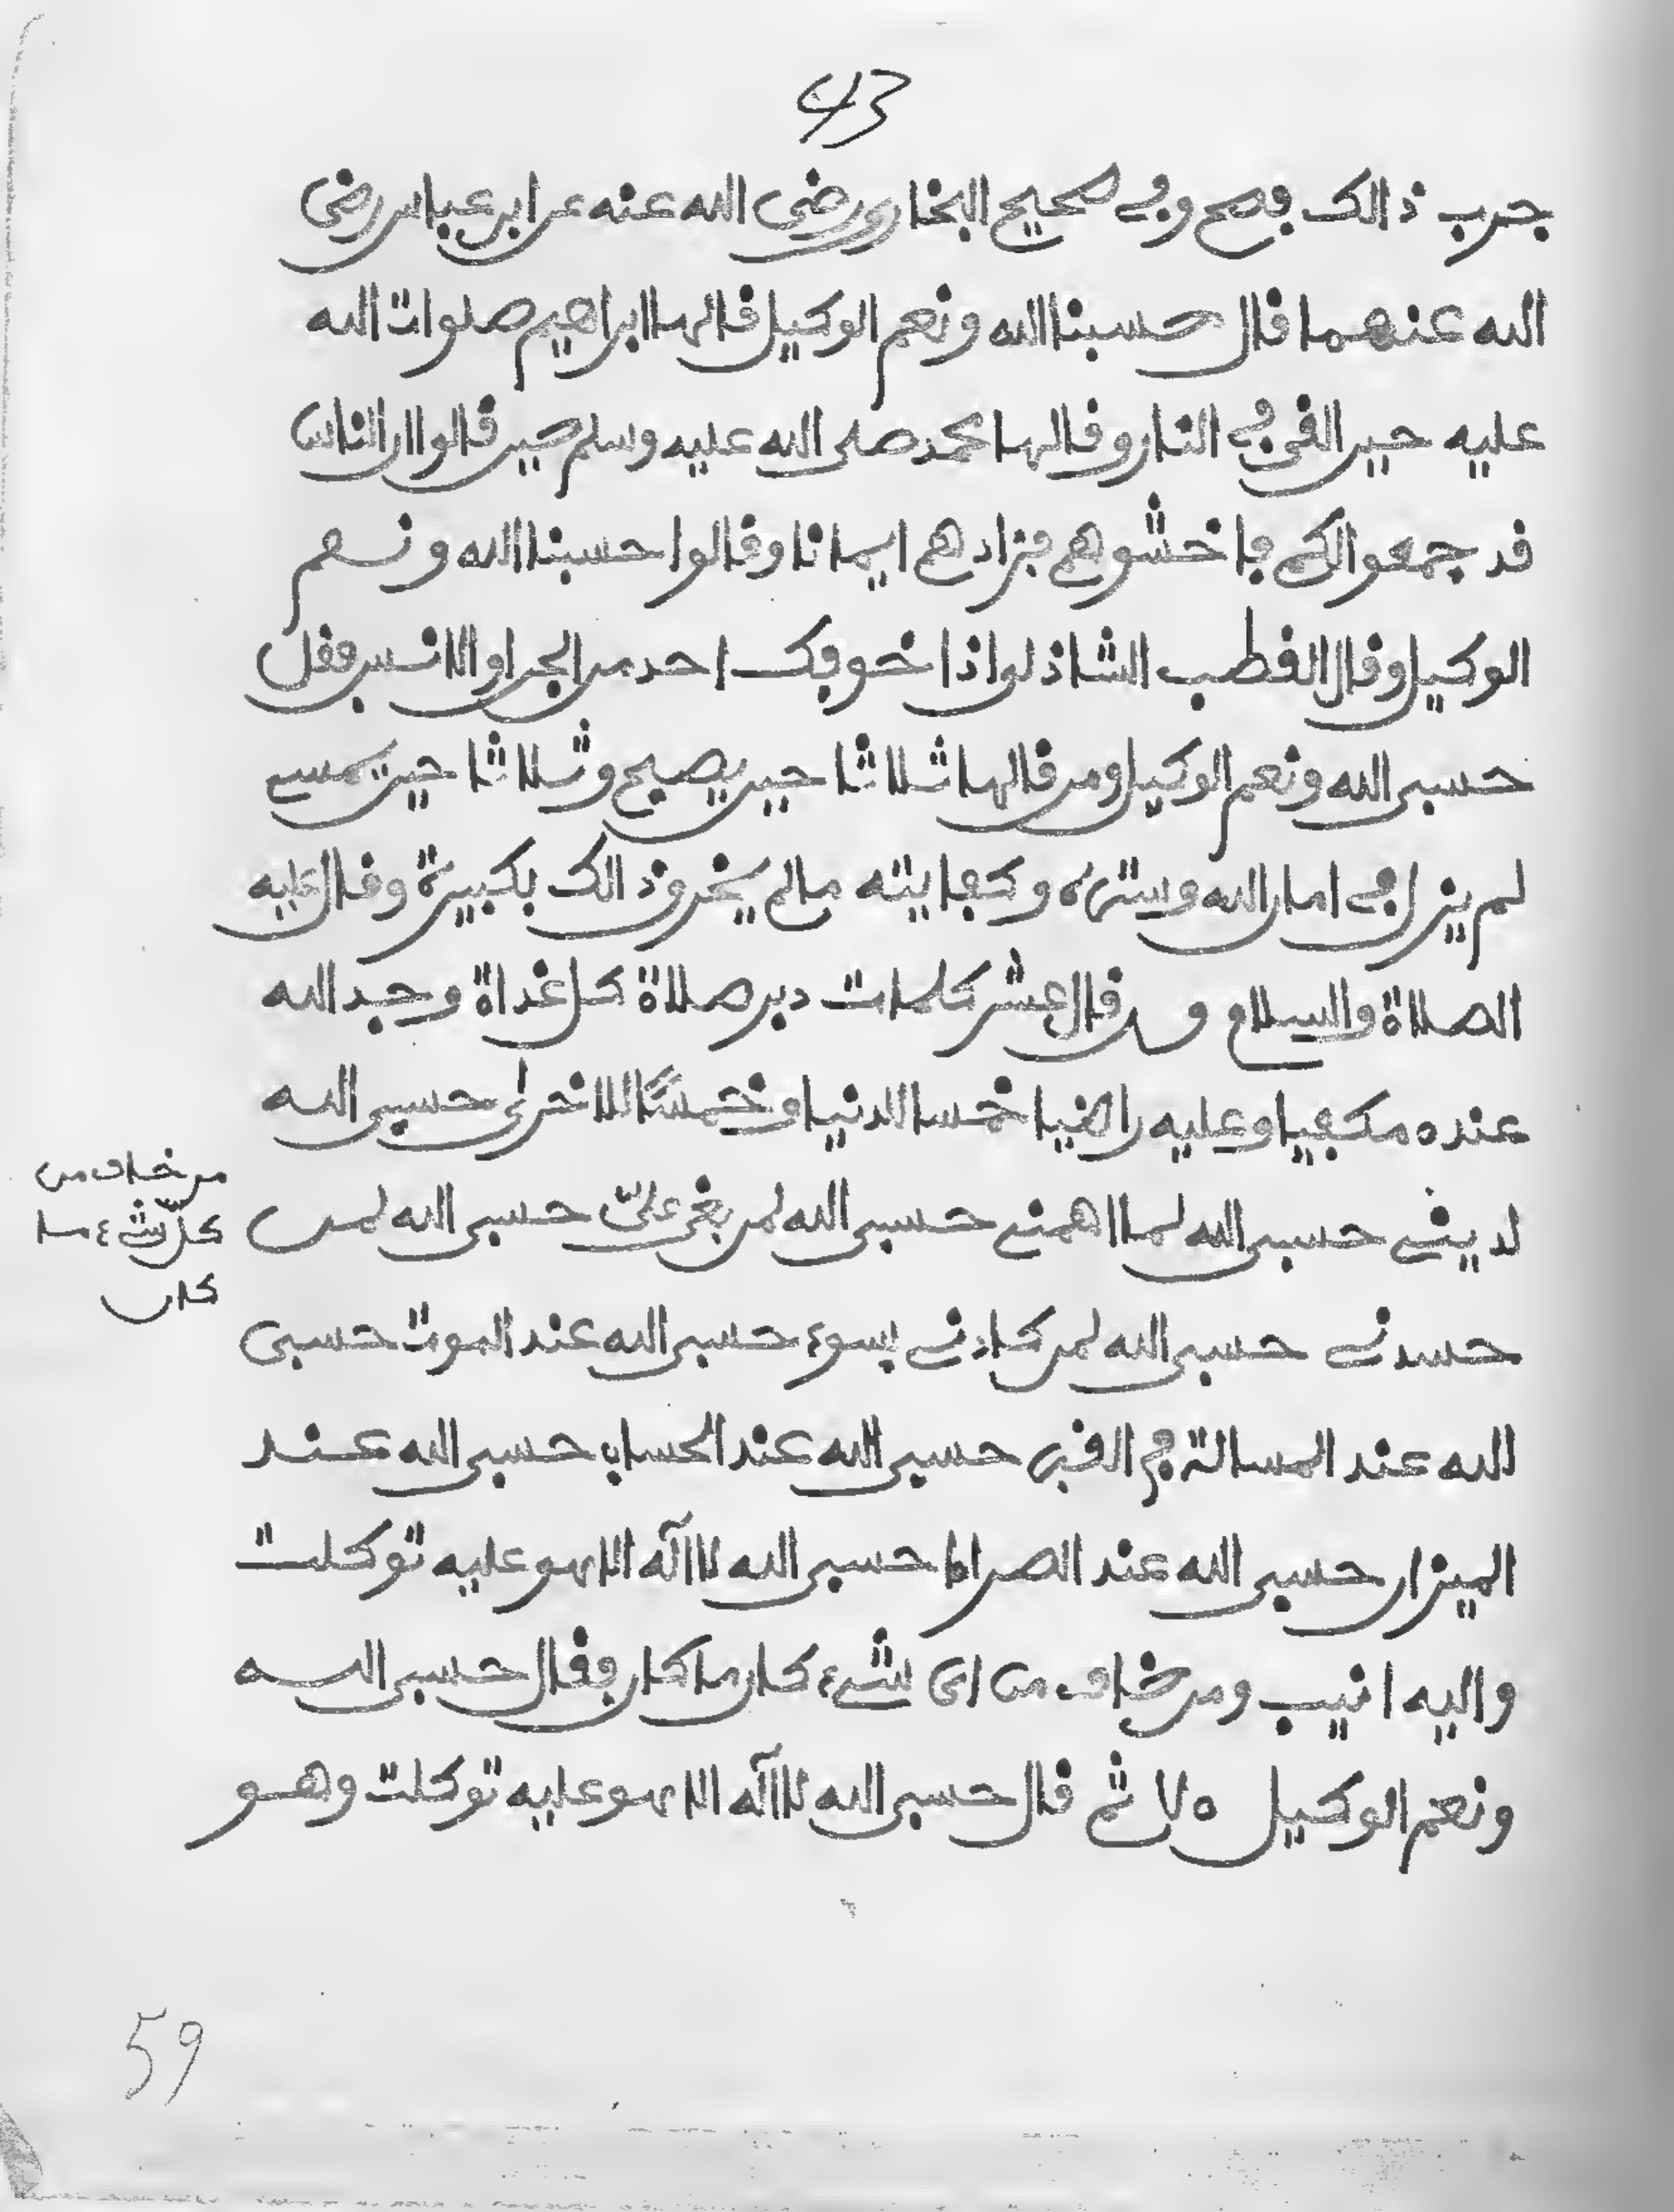 43
جرب ذالك فصح وفي صحيح البخاري ورضي الله عنه عن ابن عباس رضي
الله عنهما قال حسبنا الله ونعم الوكيل قالها ابراهيم صلوات الله
عليه حين القي في النار وقالها محمد صلى الله عليه وسلم حين قالوا ان الناس
قد جمعوا لكم فاخشوهم فزادهم ايمانا وقالوا حسبنا الله ونعم
الوكيل وقال القطب الشاذلي اذا خوفك احد من الجن او الانس فقل
حسبي الله ونعم الوكيل ومن قالها ثلاثا حين يصبح وثلاثا حين يمسي
لم يزل في امان الله وستره وكفايته مالم يخرق ذالك بكبيرة وقال عليه
الصلاة والسلام ومن قال عشر كلمات دبر صلاة كل غداة وجد الله
عنده مكفيا وعليه راضيا خمسا للدنيا وخمسًا للاخرى حسبي الله
لديني حسبي الله لما اهمني حسبي الله لمن بغى عليّ حسبي الله لمن
حسدني حسبي الله لمن كادني بسوء حسبي الله عند الموت حسبي
الله عند المسالة في القبر حسبي الله عند الحساب حسبي الله عند
الميزان حسبي الله عند الصراط حسبي الله لا اله الا هو عليه توكلت
واليه انيب ومن خاف من اي شيء كان ما كان فقال حسبي الله
ونعم الوكيل ٧٥ ثم قال حسبي الله لا اله الا هو عليه توكلت وهو
من خاف من
كلّ شيء ما
كان
59